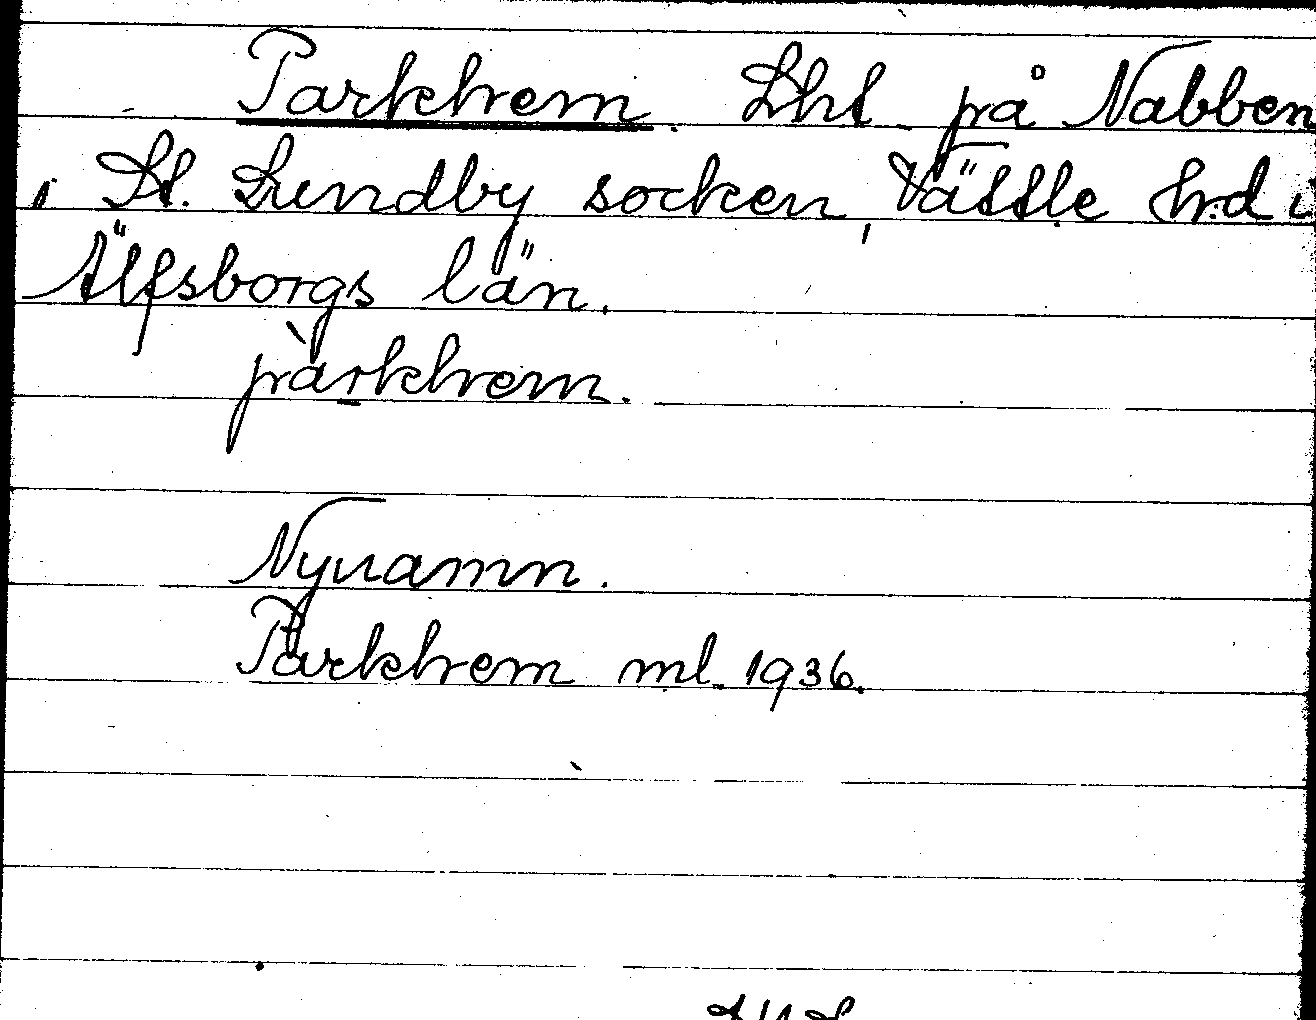 Parkhem. Lht på Nabben
i St. Lundby socken, Vättle hd i
Älfsborgs län.
pàrkhem.
Nynamn.
Parkhem ml. 1936.